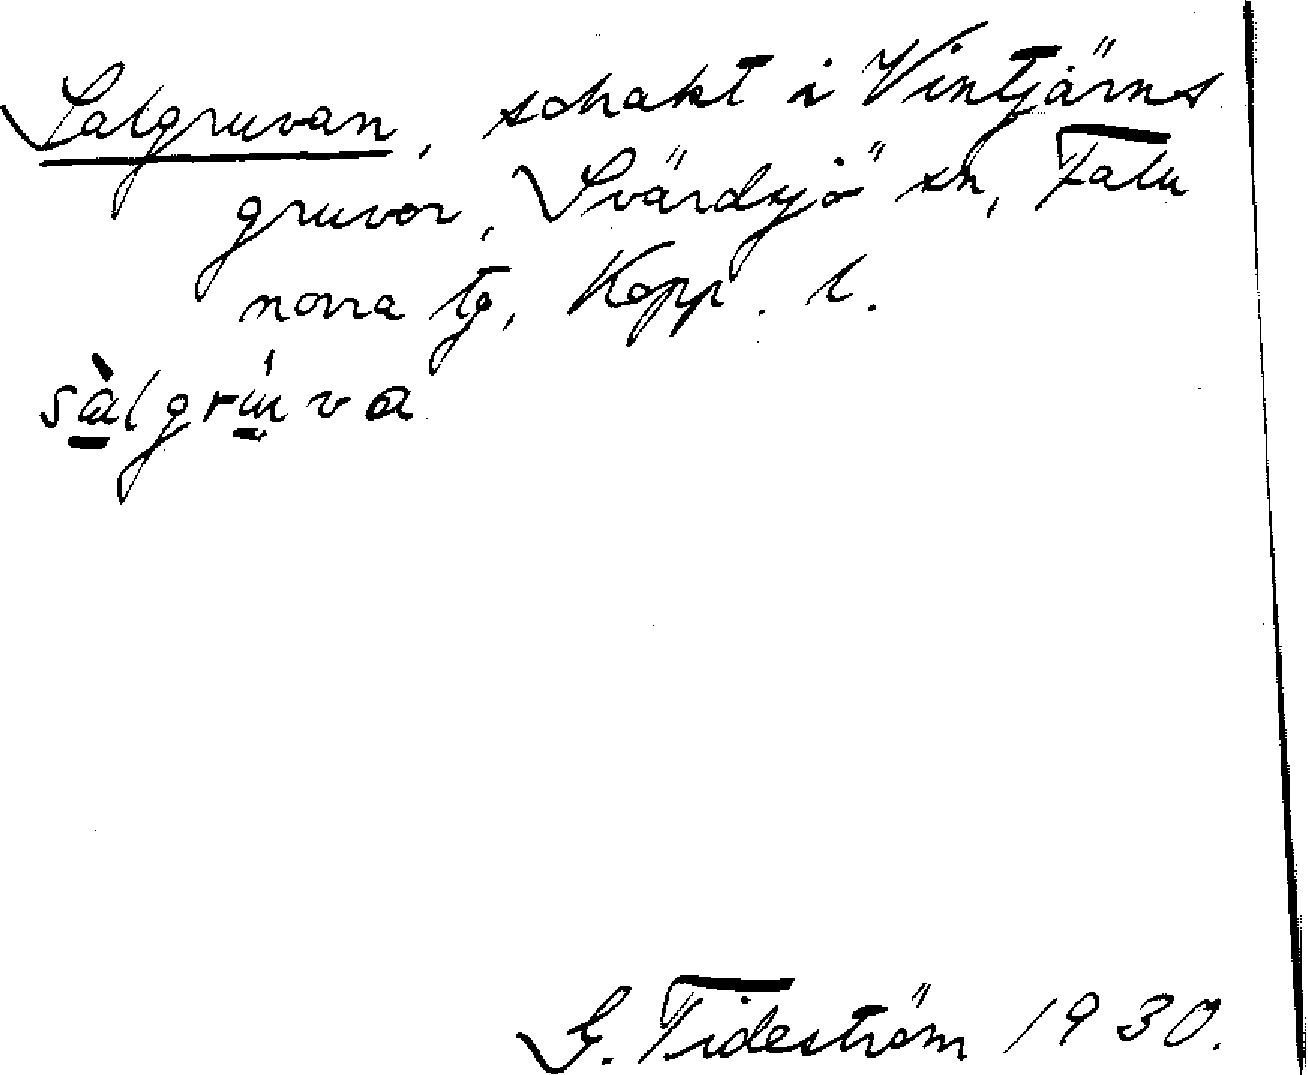 Salgruvan, schakt i Vintjärns
gruvor, Svärdsjö sn, Falu
norra tg, Kopp. l.
sàlgrúva
G. Tideström 1930.